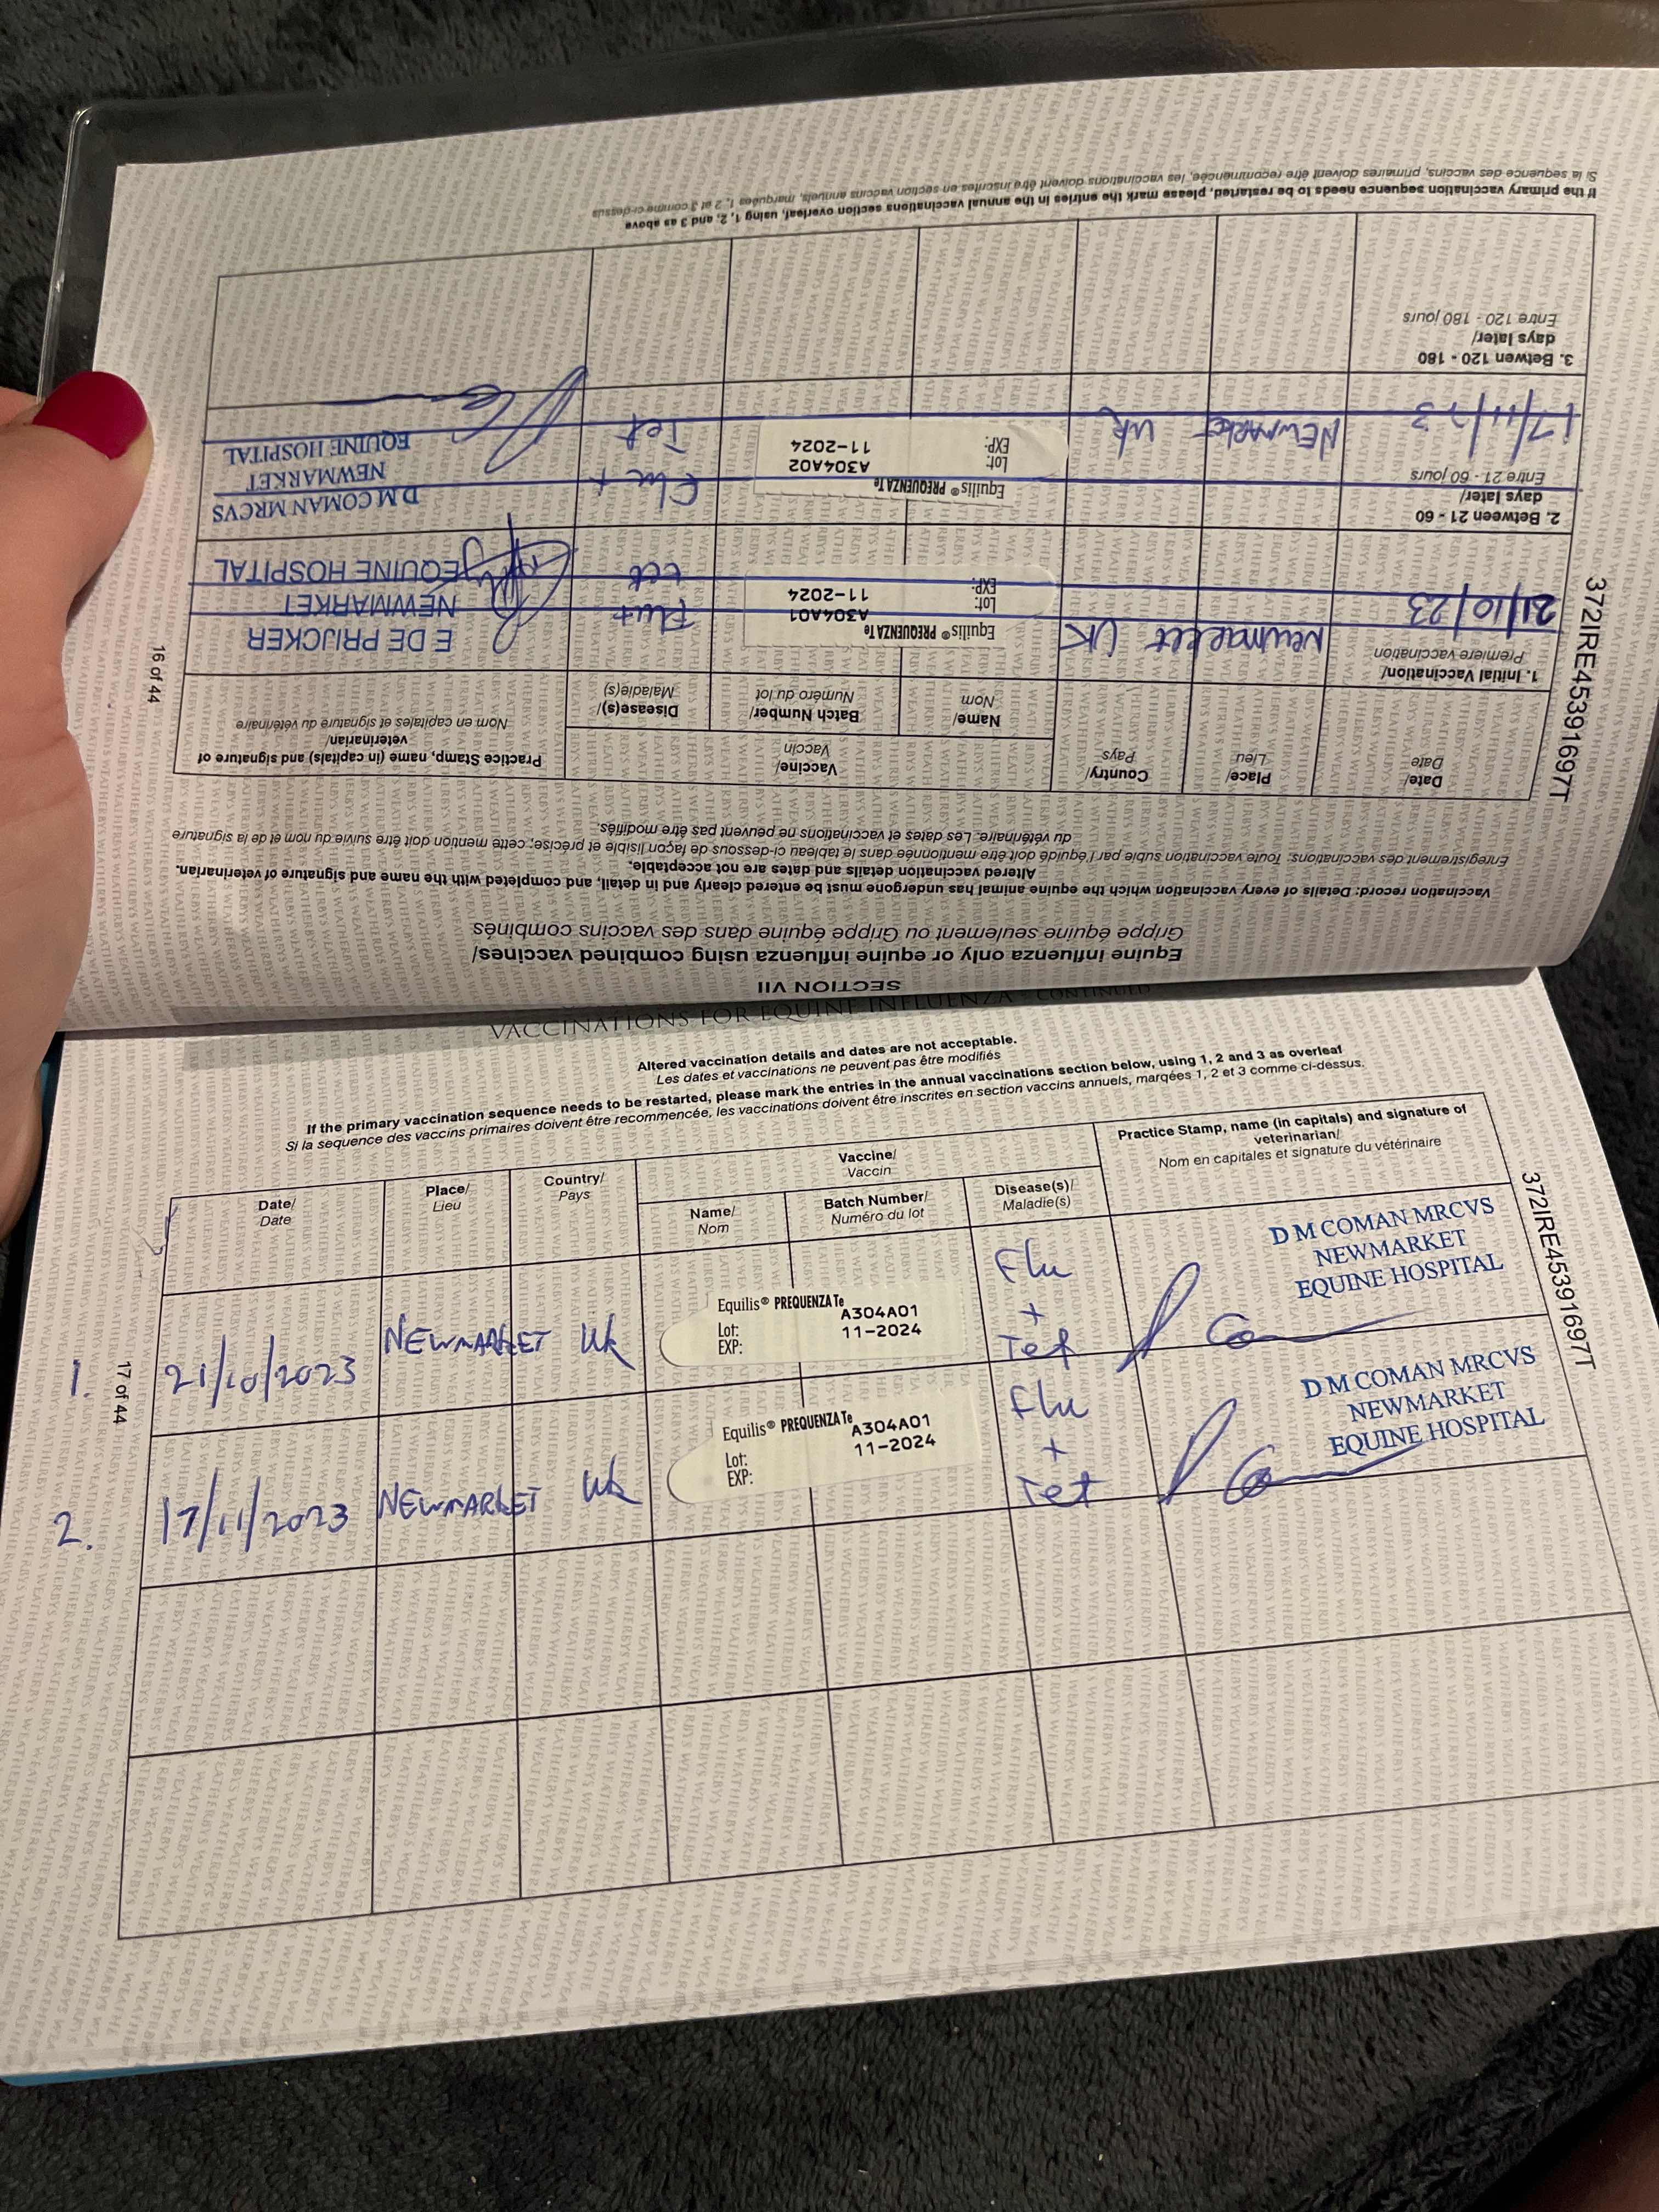 SECTION VII
Equine influenza only or equine influenza using combined vaccines/
Grippe équine seulement ou Grippe équine dans des vaccins combinés
Vaccination record: Details of every vaccination which the equine animal has undergone must be entered clearly and in detail, and completed with the name and signature of veterinarian.
Altered vaccination details and dates are not acceptable.
Enregistrement des vaccinations: Toute vaccination subie par l'équidé doit être mentionnée dans le tableau ci-dessous de façon lisible et précise; cette mention doit être suivie du nom et de la signature
du vétérinaire. Les dates et vaccinations ne peuvent pas être modifiés.
Date/
Date
Place/
Lieu
Country/
Pays
Vaccine/
Vaccin
Name/
Nom
Batch Number/
Numéro du lot
Disease(s)/
Maladie(s)
Practice Stamp, name (in capitals) and signature of
veterinarian/
Nom en capitales et signature du vétérinaire
1. Initial Vaccination/
Première vaccination
21/10/23
Newmarket
UK
Equilis® PREQUENZA Te
Lot:
A304A01
EXP:
11-2024
Flu+
tet
E DE PRIJCKER
NEWMARKET
EQUINE HOSPITAL
2. Between 21 - 60
days later/
Entre 21 - 60 jours
17/11/23
NEWMARKET
UK
Equilis® PREQUENZA Te
Lot:
A304A02
EXP:
11-2024
Flu +
Tet
D M COMAN MRCVS
NEWMARKET
EQUINE HOSPITAL
3. Betwen 120 - 180
days later/
Entre 120 - 180 jours
If the primary vaccination sequence needs to be restarted, please mark the entries in the annual vaccinations section overleaf, using 1, 2, and 3 as above
Si la sequence des vaccins, primaires doivent être recommencée, les vaccinations doivent être inscrites en section vaccins annuels, marquées 1, 2 at 3 comme ci-dessus
372IRE45391697T
16 of 44
VACCINATIONS FOR EQUINE INFLUENZA - CONTINUED
Altered vaccination details and dates are not acceptable.
Les dates et vaccinations ne peuvent pas être modifiés
If the primary vaccination sequence needs to be restarted, please mark the entries in the annual vaccinations section below, using 1, 2 and 3 as overleaf
Si la sequence des vaccins primaires doivent être recommencée, les vaccinations doivent être inscrites en section vaccins annuels, marqées 1, 2 et 3 comme ci-dessus.
Date/
Date
Place/
Lieu
Country/
Pays
Vaccine/
Vaccin
Name/
Nom
Batch Number/
Numéro du lot
Disease(s)/
Maladie(s)
Practice Stamp, name (in capitals) and signature of
veterinarian/
Nom en capitales et signature du vétérinaire
1.
21/10/2023
NEWMARKET
UK
Equilis® PREQUENZA Te
Lot:
A304A01
EXP:
11-2024
Flu
+
Tet
D M COMAN MRCVS
NEWMARKET
EQUINE HOSPITAL
2.
17/11/2023
NEWMARKET
UK
Equilis® PREQUENZA Te
Lot:
A304A01
EXP:
11-2024
Flu
+
Tet
D M COMAN MRCVS
NEWMARKET
EQUINE HOSPITAL
372IRE45391697T
17 of 44